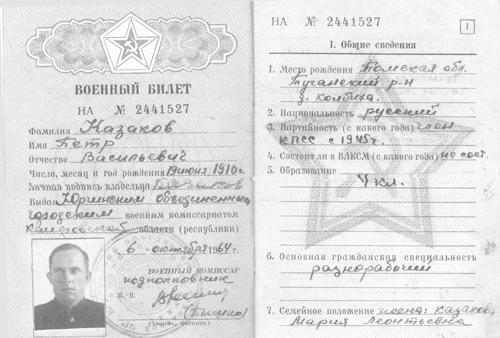 ВОЕННЫЙ БИЛЕТ
НА № 2441527
Фамилия Казаков
Имя Петр
Отчество Васильевич
Число, месяц и год рождения 19 июня 1916 г.
Личная подпись владельца Казаков
Выдан Юргинским объединенным
городским военным комиссариатом
Кемеровской области (республики)
6 октября 1964 г.
ВОЕННЫЙ КОМИССАР
подполковник
М.П.
НА № 2441527
1
I. Общие сведения
1. Место рождения Томская обл.
Туганский р-н
2. Национальность русский
3. Партийность (с какого года) член
КПСС с 1945 г.
4. Состоит ли в ВЛКСМ (с какого года) не сост.
5. Образование
4 кл.
6. Основная гражданская специальность
разнорабочий
7. Семейное положение жена: Казакова
Мария Леонтьевна